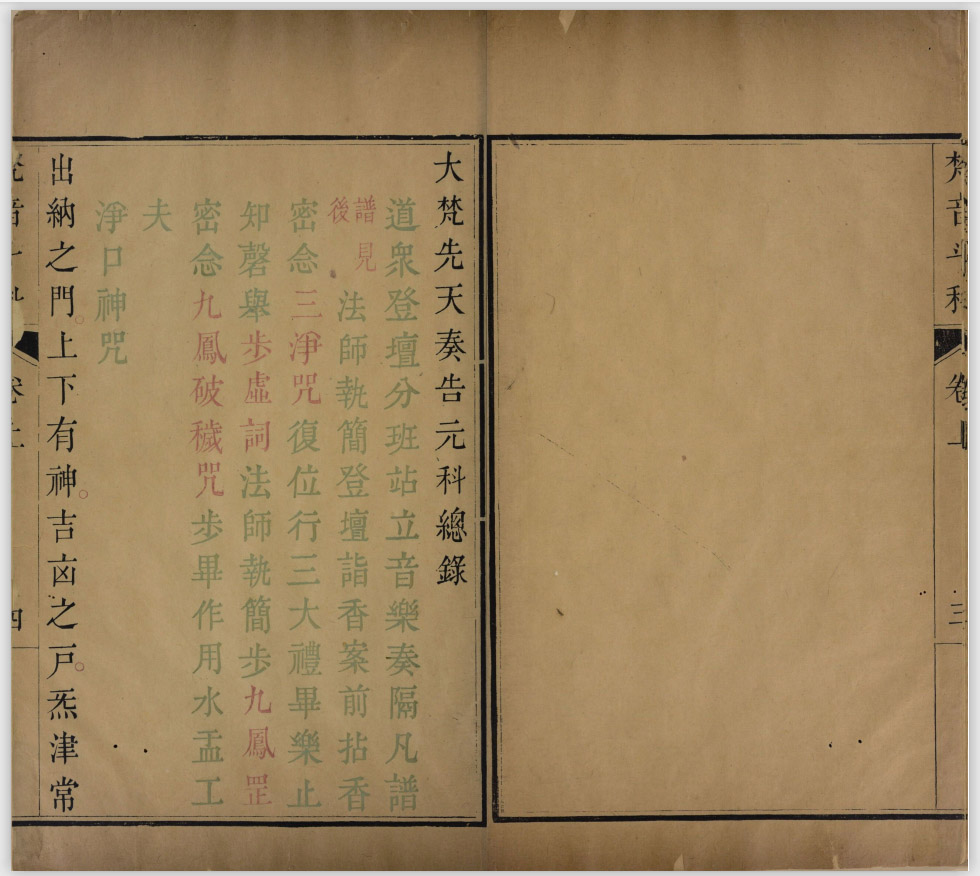 梵音斗科
卷上
三
大梵先天奏告元科總錄
道衆登壇分班站立音樂奏隔凡譜
譜見
後
法師執簡登壇詣香案前拈香
密念三淨咒復位行三大禮畢樂止
知磬舉步虛詞法師執簡步九鳳罡
密念九鳳破穢咒步畢作用水盂工
夫
淨口神咒
出納之門上下有神吉凶之戸炁津常
四